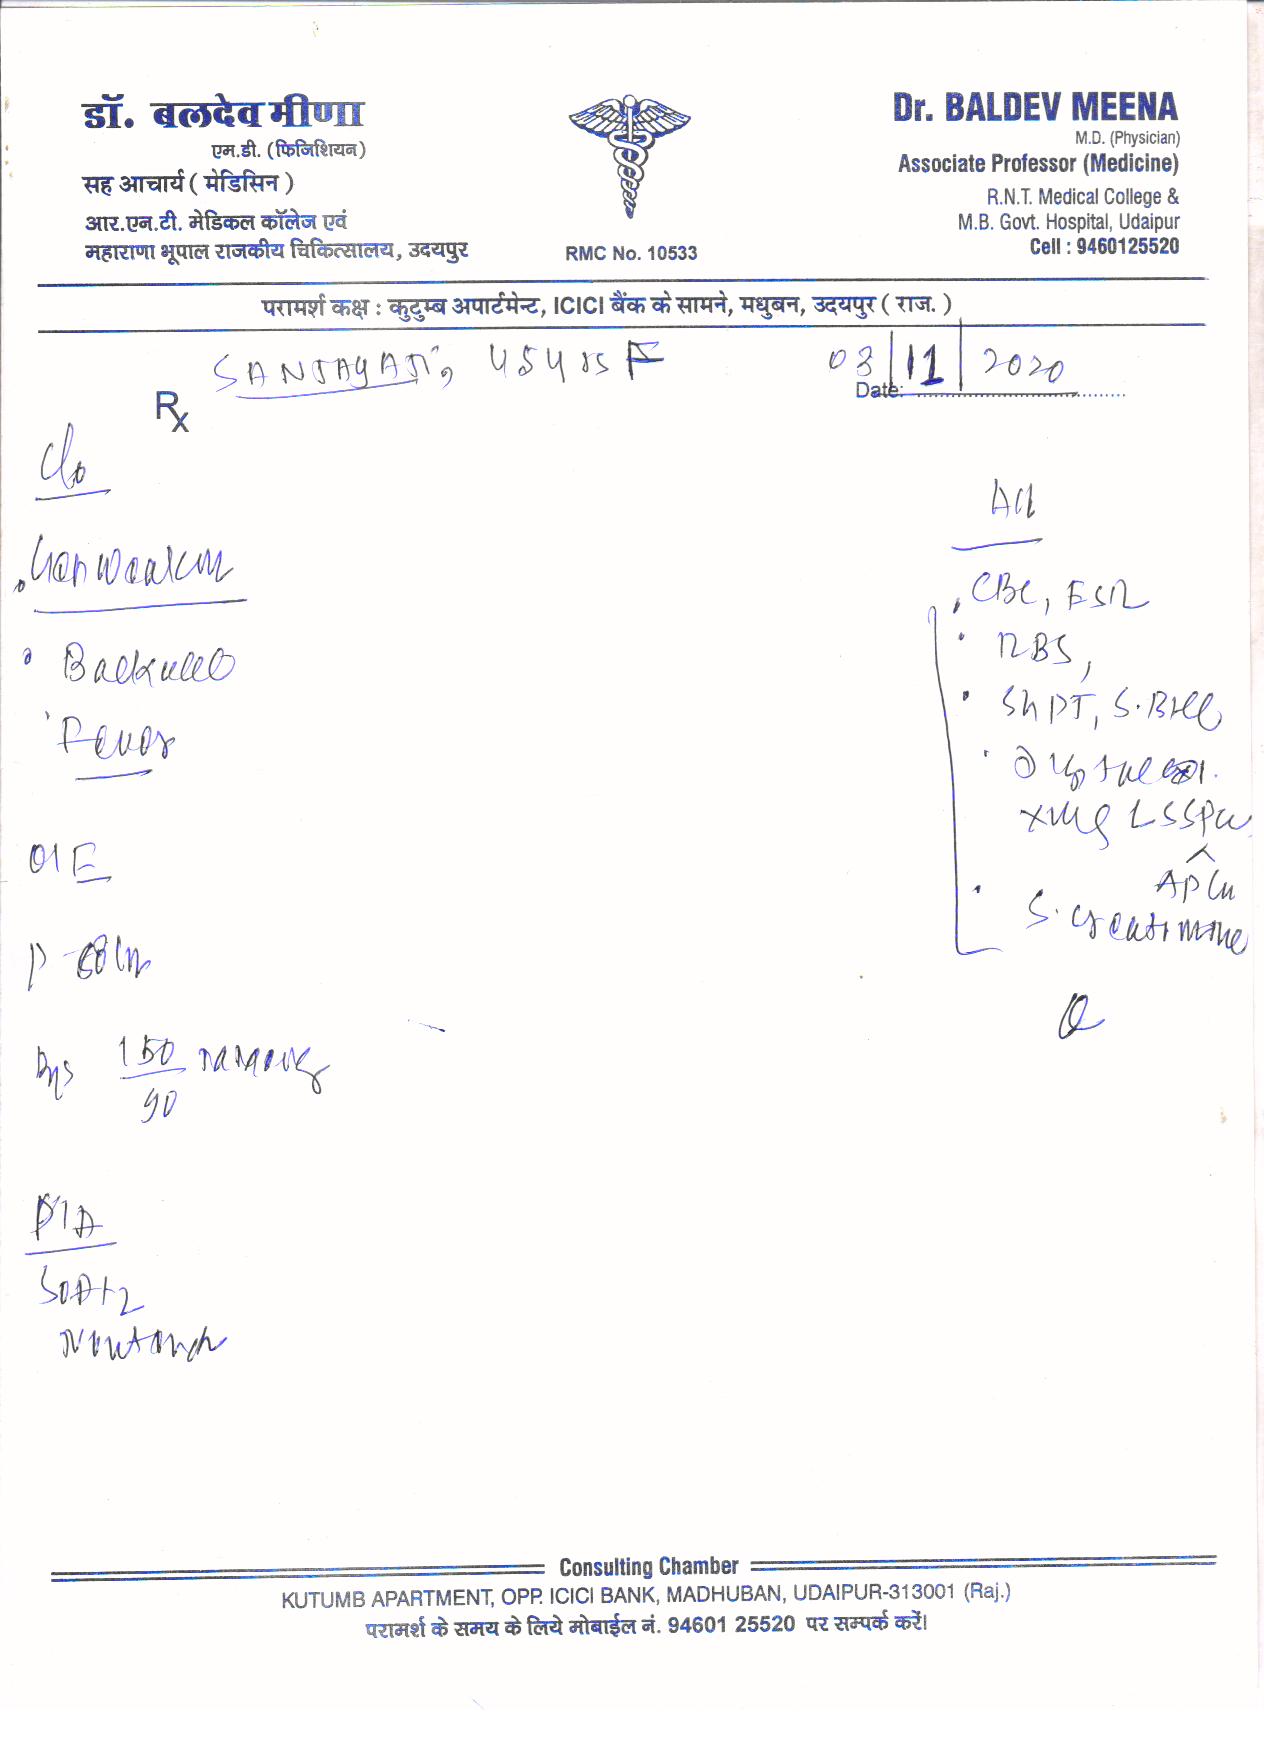 डॉ. बलदेव मीणा
एम.डी. (फिजिशियन)
सह आचार्य ( मेडिसिन )
आर.एन.टी. मेडिकल कॉलेज एवं
महाराणा भूपाल राजकीय चिकित्सालय, उदयपुर
RMC No. 10533
Dr. BALDEV MEENA
M.D. (Physician)
Associate Professor (Medicine)
R.N.T. Medical College &
M.B. Govt. Hospital, Udaipur
Cell : 9460125520
परामर्श कक्ष : कुटुम्ब अपार्टमेन्ट, ICICI बैंक के सामने, मधुबन, उदयपुर ( राज. )
45 yrs F
Date: 03/11/2020
Rx
C/o
Fever
O/E
150/90
P/A
Soft
Adv
CBC, ESR
RBS,
SGPT, S.
Xray LSSpine
AP
S. Creatinine
Consulting Chamber
KUTUMB APARTMENT, OPP. ICICI BANK, MADHUBAN, UDAIPUR-313001 (Raj.)
परामर्श के समय के लिये मोबाईल नं. 94601 25520 पर सम्पर्क करें।